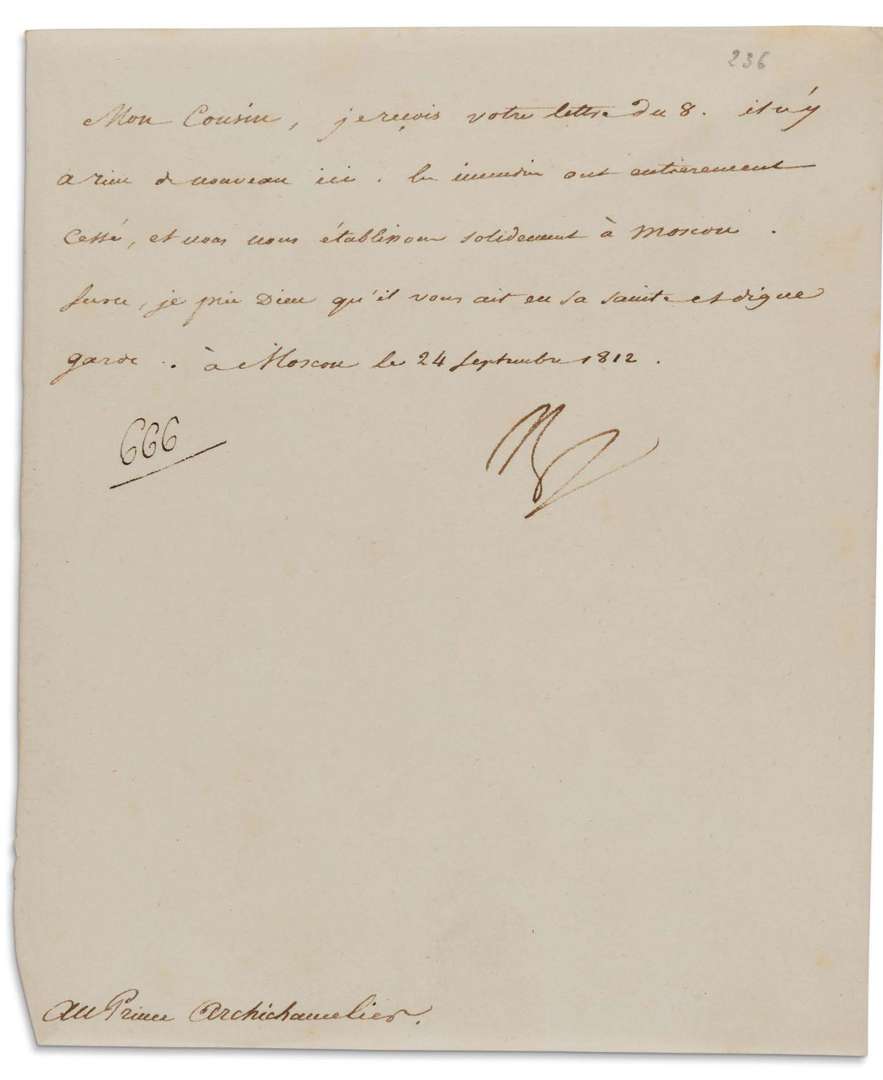 236
Mon Cousin, je reçois votre lettre du 8. il n'y
a rien de nouveau ici. les incendies ont entièrement
cessé, et nous nous établissons solidement à Moscou.
Sur ce, je prie Dieu qu'il vous ait en sa sainte et digne
garde. à Moscou le 24 Septembre 1812.
666
Au Prince Archichancelier.